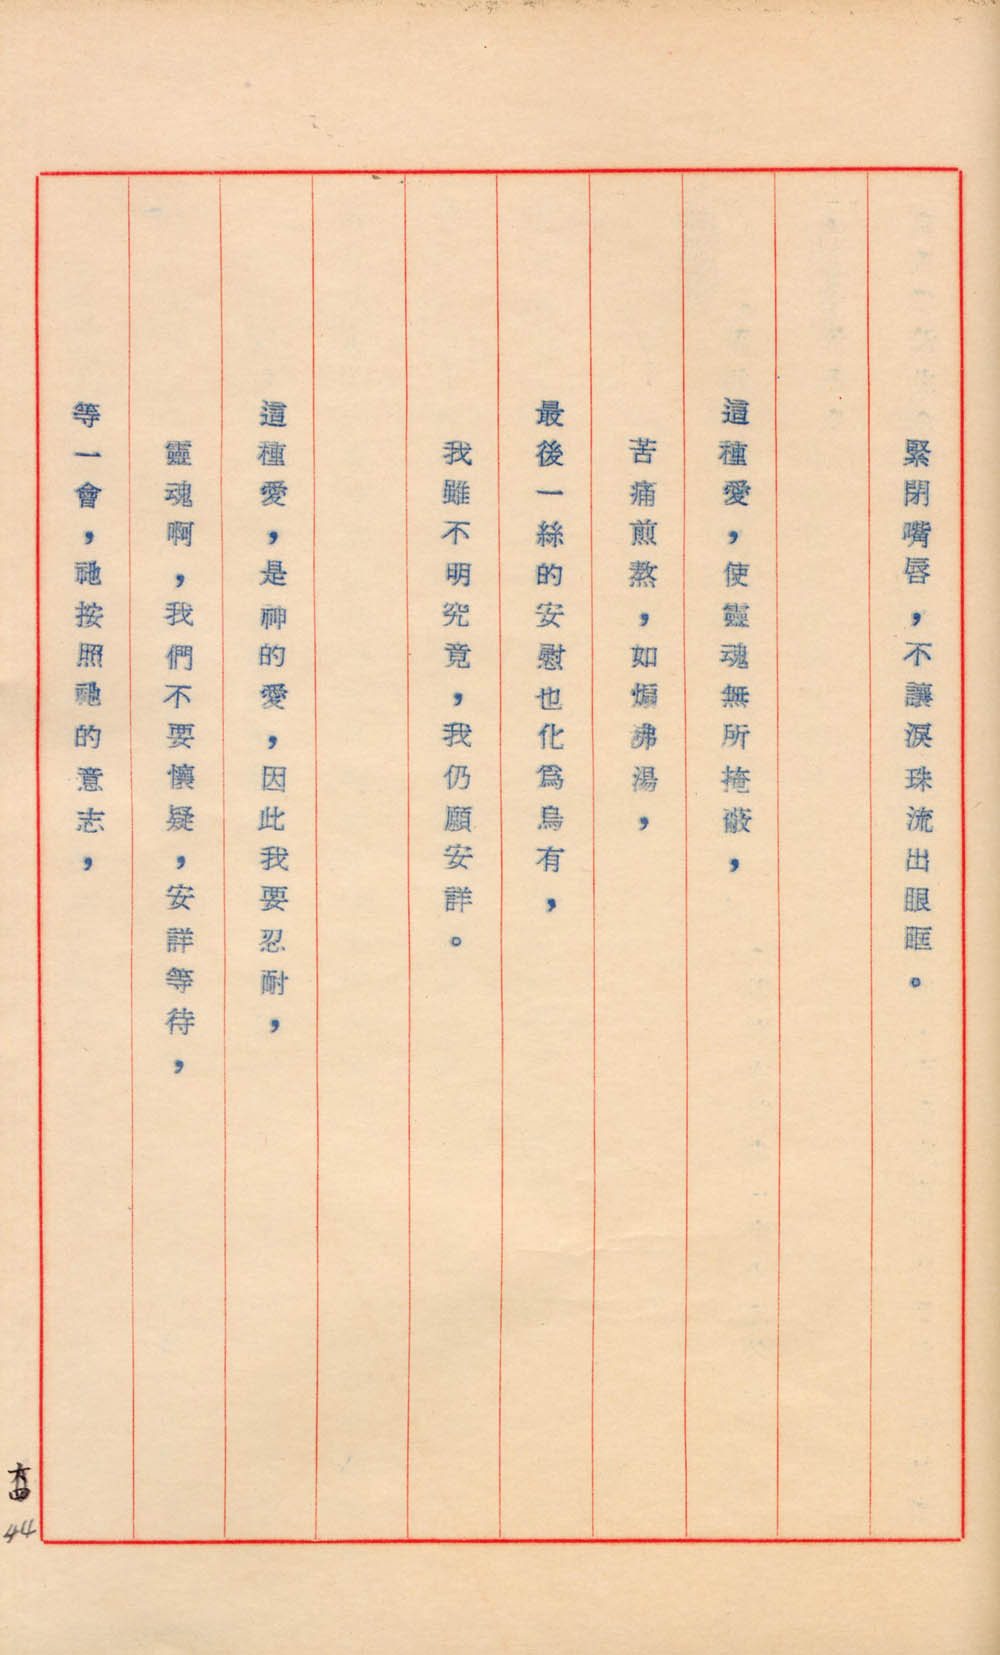 緊閉嘴唇，不讓淚珠流出眼眶。
這種愛，使靈魂無所掩蔽，
苦痛煎熬，如煩沸湯，
最後一絲的安慰也化為烏有，
我雖不明究竟，我仍願安詳。
這種愛，是神的愛，因此我要忍耐，
靈魂啊，我們不要懷疑，安詳等待，
等一會，祂按照祂的意志，
44